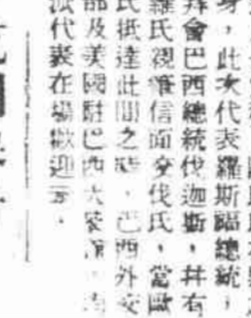 身，此次代表羅斯福總統，
拜會巴西總統伐迦斯，并有
羅氏親筆信面交伐氏，當歐
氏抵達此間之時，巴西外交
部及美國駐巴西大使館，
派代表在場歡迎云．